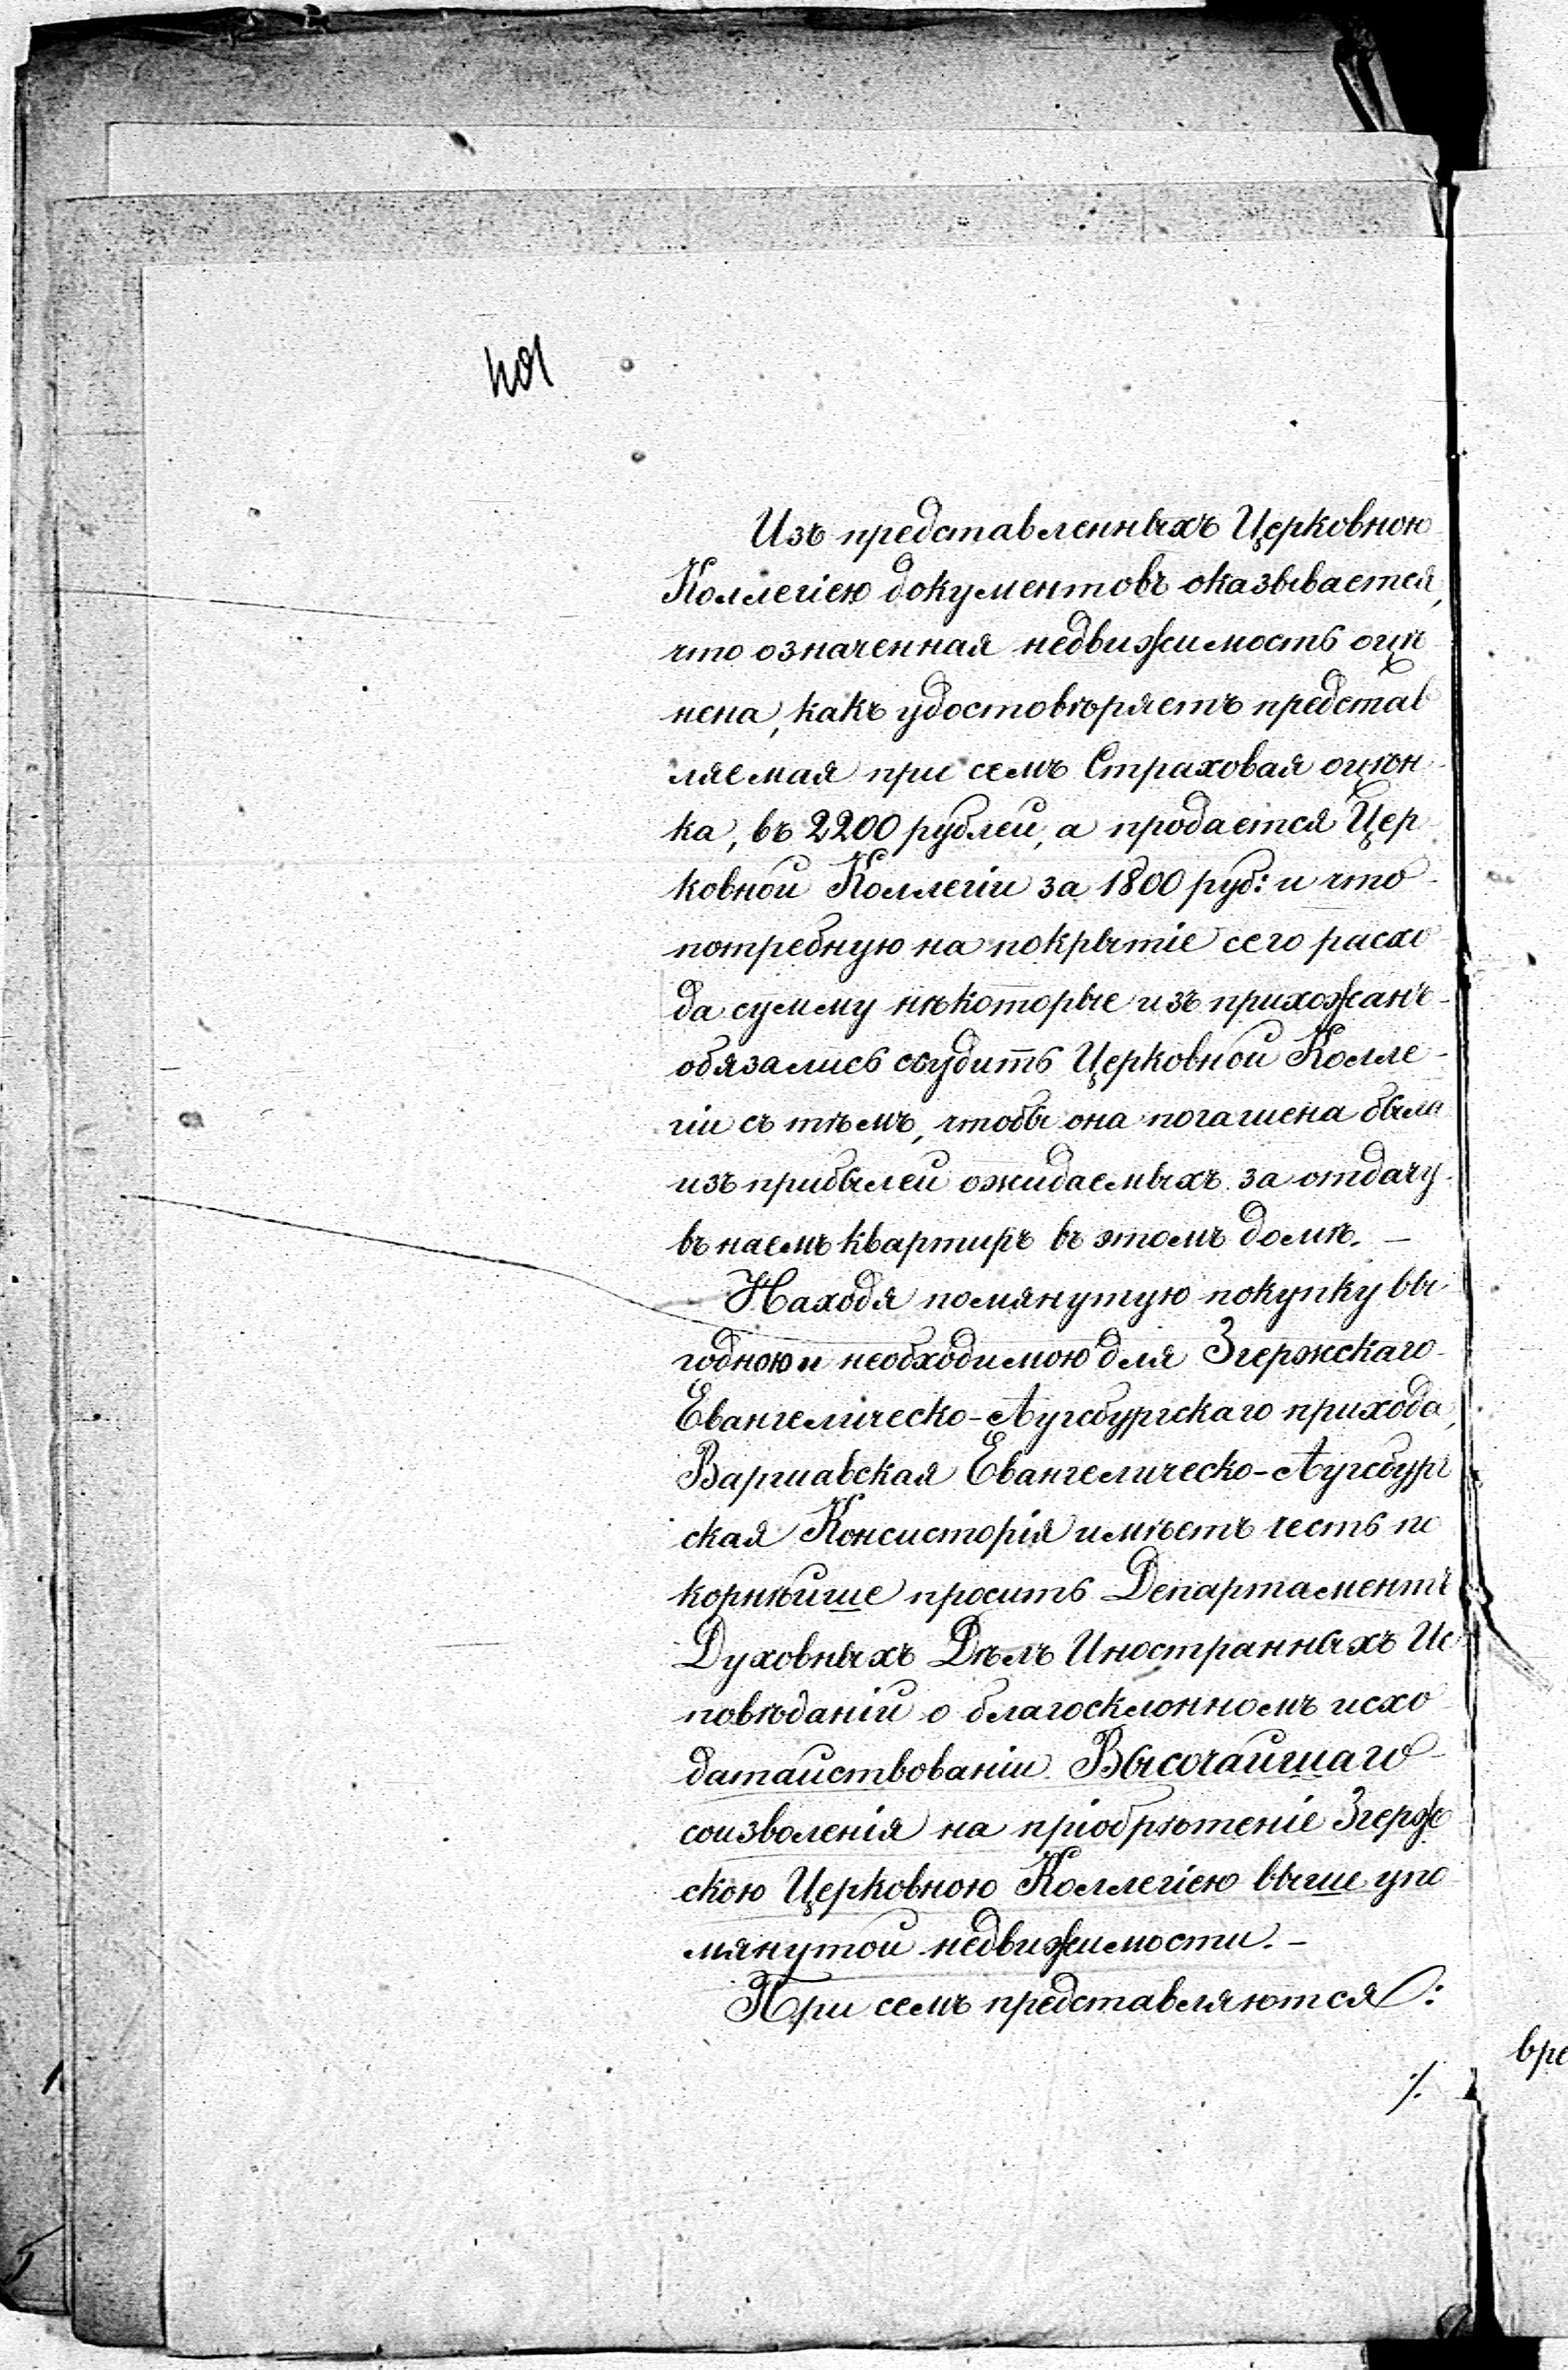 Изъ представленныхъ Церковною
Коллегіею документовъ оказывается,
что означенная недвижимость оцѣ
нена, какъ удостовѣряетъ представ
ляемая при семъ Страховая оцѣн-
ка, въ 2200 рублей, а продается Цер
ковной Коллегіи за 1800 руб: и что
потребную на покрытіе сего расхо
да сумму нѣкоторые изъ прихожанъ
обязались ссудить Церковной Колле-
гіи съ тѣмъ, чтобы она погашена была
изъ прибылей ожидаемыхъ за отдачу
въ наемъ квартиръ въ этомъ домѣ. –
Находя помянутую покупку вы
годною и необходимою для Згержскаго
Евангелическо-Аугсбургскаго прихода,
Варшавская Евангелическо-Аугсбург
ская Консисторія имѣетъ честь по
корнѣйше просить Департаментъ
Духовныхъ Дѣлъ Иностранныхъ Ис
повѣданій о благосклонномъ исхо
датайствованіи Высочайшаго
соизволенія на пріобрѣтеніе Згерж
скою Церковною Коллегіею выше упо
мянутой недвижимости. –
При семъ представляются:
./.
вре